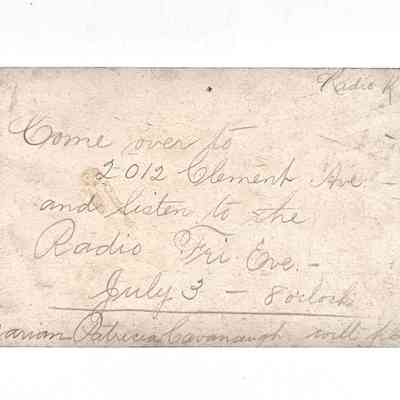 Radio K
Come over to
2012 Clement Ave -
and listen to the
Radio Fri Eve. -
July 3 - 8 o'clock
arian Patricia Cavanaugh will